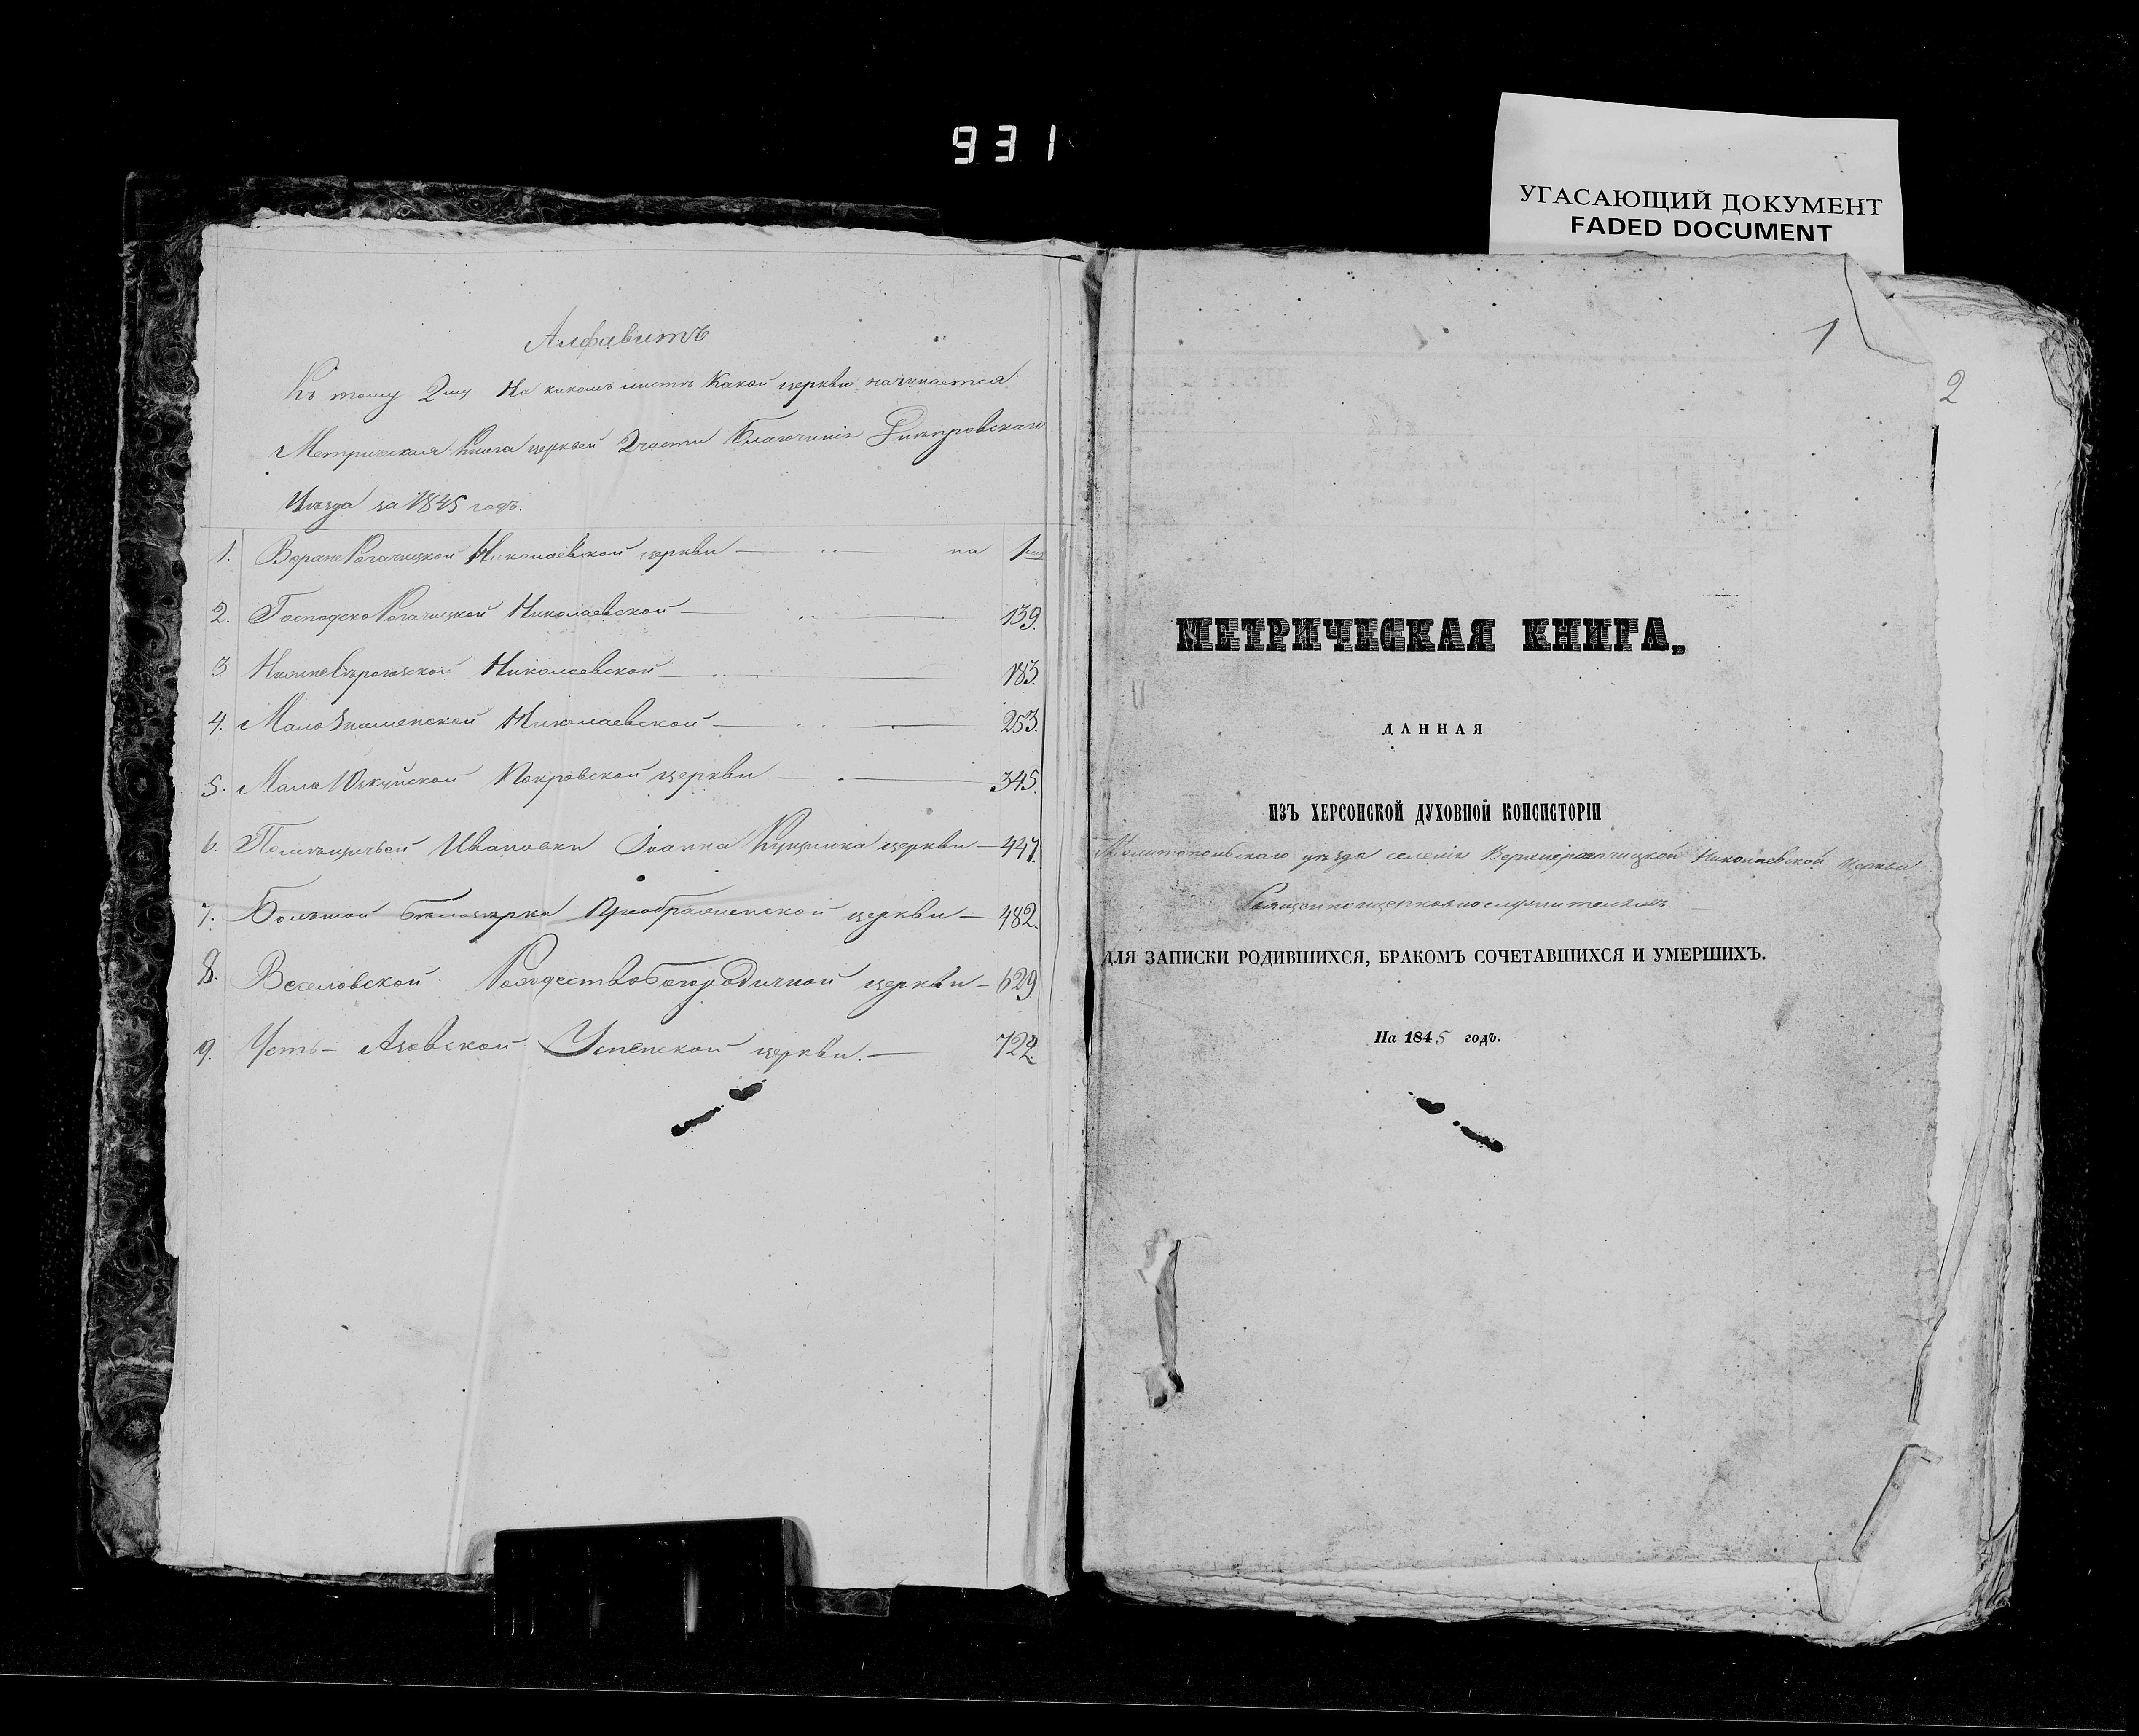 931
УГАСАЮЩИЙ ДОКУМЕНТ
FADED DOCUMENT
Алфавитъ
Къ тому 2му На какомъ листѣ Какой церкви начинается
Метрическая Книга церквей 2 части Благочинія Днѣпровскаго
Уѣзда за 1845 годъ.
1. ВерхнеРогачицкой Николаевской церкви — на 1
2. ГосподскоРогачицкой Николаевской — 139.
3. НижнеСѣрогозской Николаевской — 183.
4. МалоЗнаменской Николаевской — 253.
5. Мало Покровской церкви — 345.
6. Ивановки Іоанна церкви — 447.
7. Большой Бѣлозерки Преображенской церкви — 482.
8. Веселовской РождествоБогородичной церкви — 629
9. Усть- Успенской церкви. — 722.
1
2
МЕТРИЧЕСКАЯ КНИГА,
ДАННАЯ
ИЗЪ ХЕРСОНСКОЙ ДУХОВНОЙ КОНСИСТОРІИ
Мелитопольскаго уѣзда селенія Верхнерогачицкой Николаевской Церкви
Священноцерковнослужителямъ.
ДЛЯ ЗАПИСКИ РОДИВШИХСЯ, БРАКОМЪ СОЧЕТАВШИХСЯ И УМЕРШИХЪ.
На 1845 годъ.